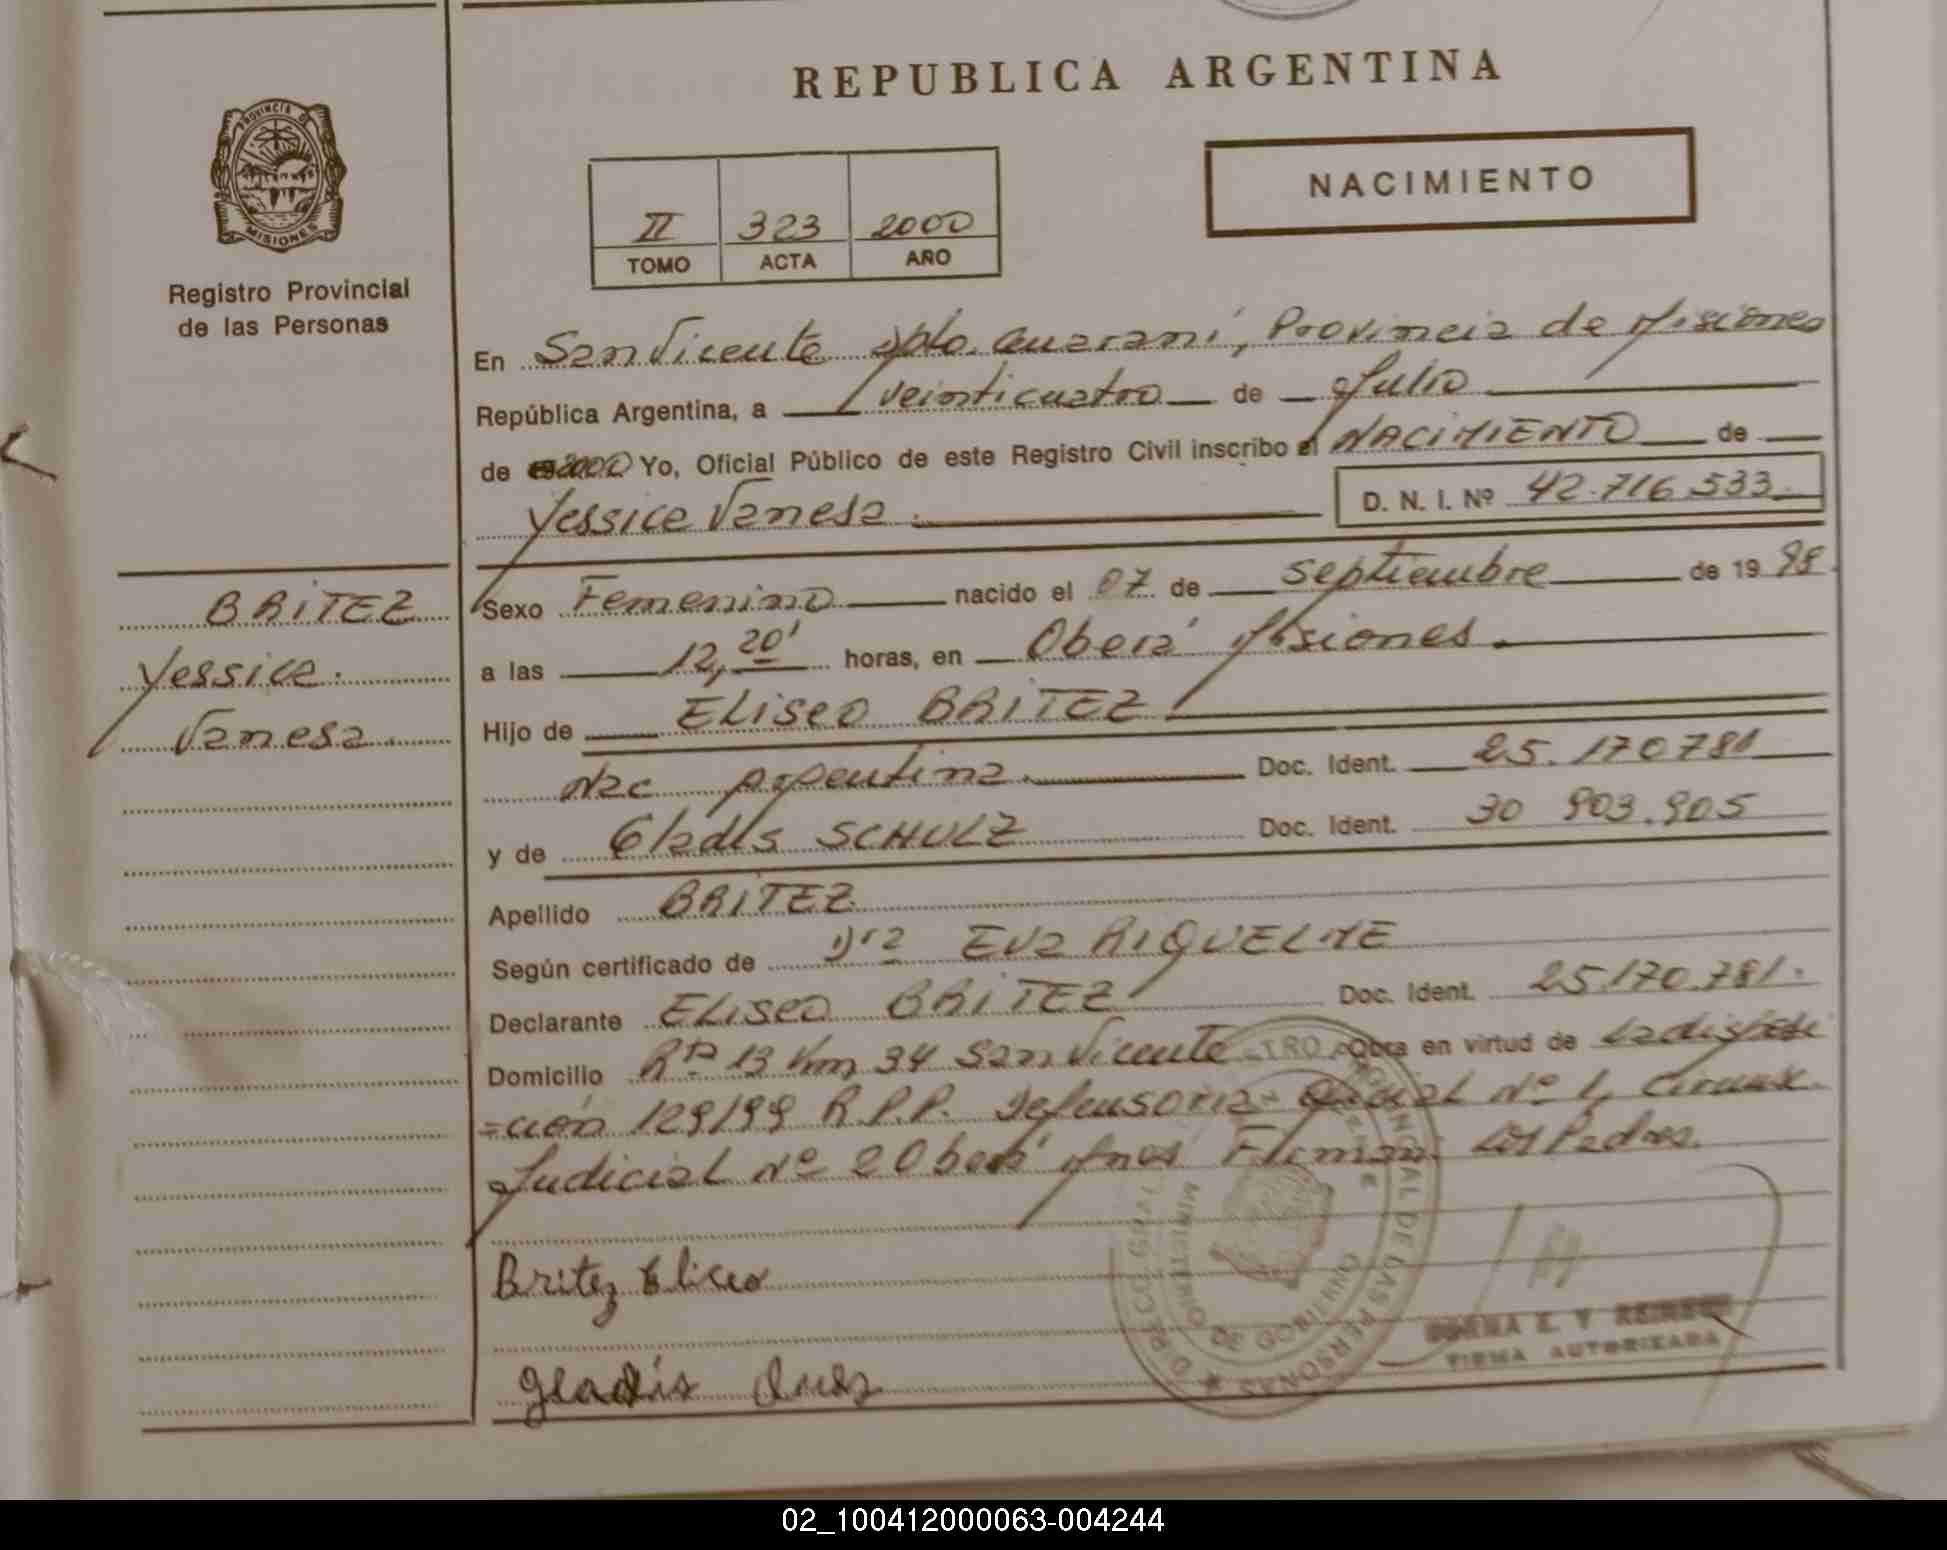 REPUBLICA ARGENTINA
PROVINCIA DE
MISIONES
Registro Provincial
de las Personas
NACIMIENTO
II 323 2000
TOMO ACTA AÑO
En San Vicente Dpto. Guaraní, Provincia de Misiones
República Argentina, a veinticuatro de Julio
de 2000 Yo, Oficial Público de este Registro Civil inscribo el NACIMIENTO de
Yessica Vanesa. D. N. I. Nº 42.716.533
BRITEZ
Yessica.
Vanesa.
Sexo Femenino nacido el 07 de septiembre de 19 98
a las 12,20' horas, en Oberá Misiones.
Hijo de ELISEO BRITEZ
Nac Argentina. Doc. Ident. 25.170781
y de Gladis SCHULZ Doc. Ident. 30 903.905
Apellido BRITEZ
Según certificado de Dra EVA RIQUELME
Declarante ELISEO BRITEZ Doc. Ident. 25.170.781.
Domicilio Rta 13 Km 34 San Vicente Obra en virtud de La disposi
=ción 129/99 R.P.P. Defensoria Oficial Nº 1, Circunsc.
Judicial Nº 2 Oberá Mnes Firman: Los Padres.
Britez Eliseo
Gladis
FIRMA AUTORIZADA
02_100412000063-004244